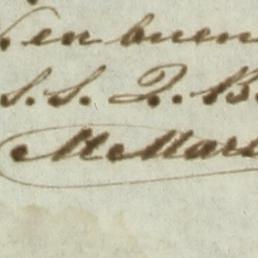 en buen
S. S. Q. B.
M Mart